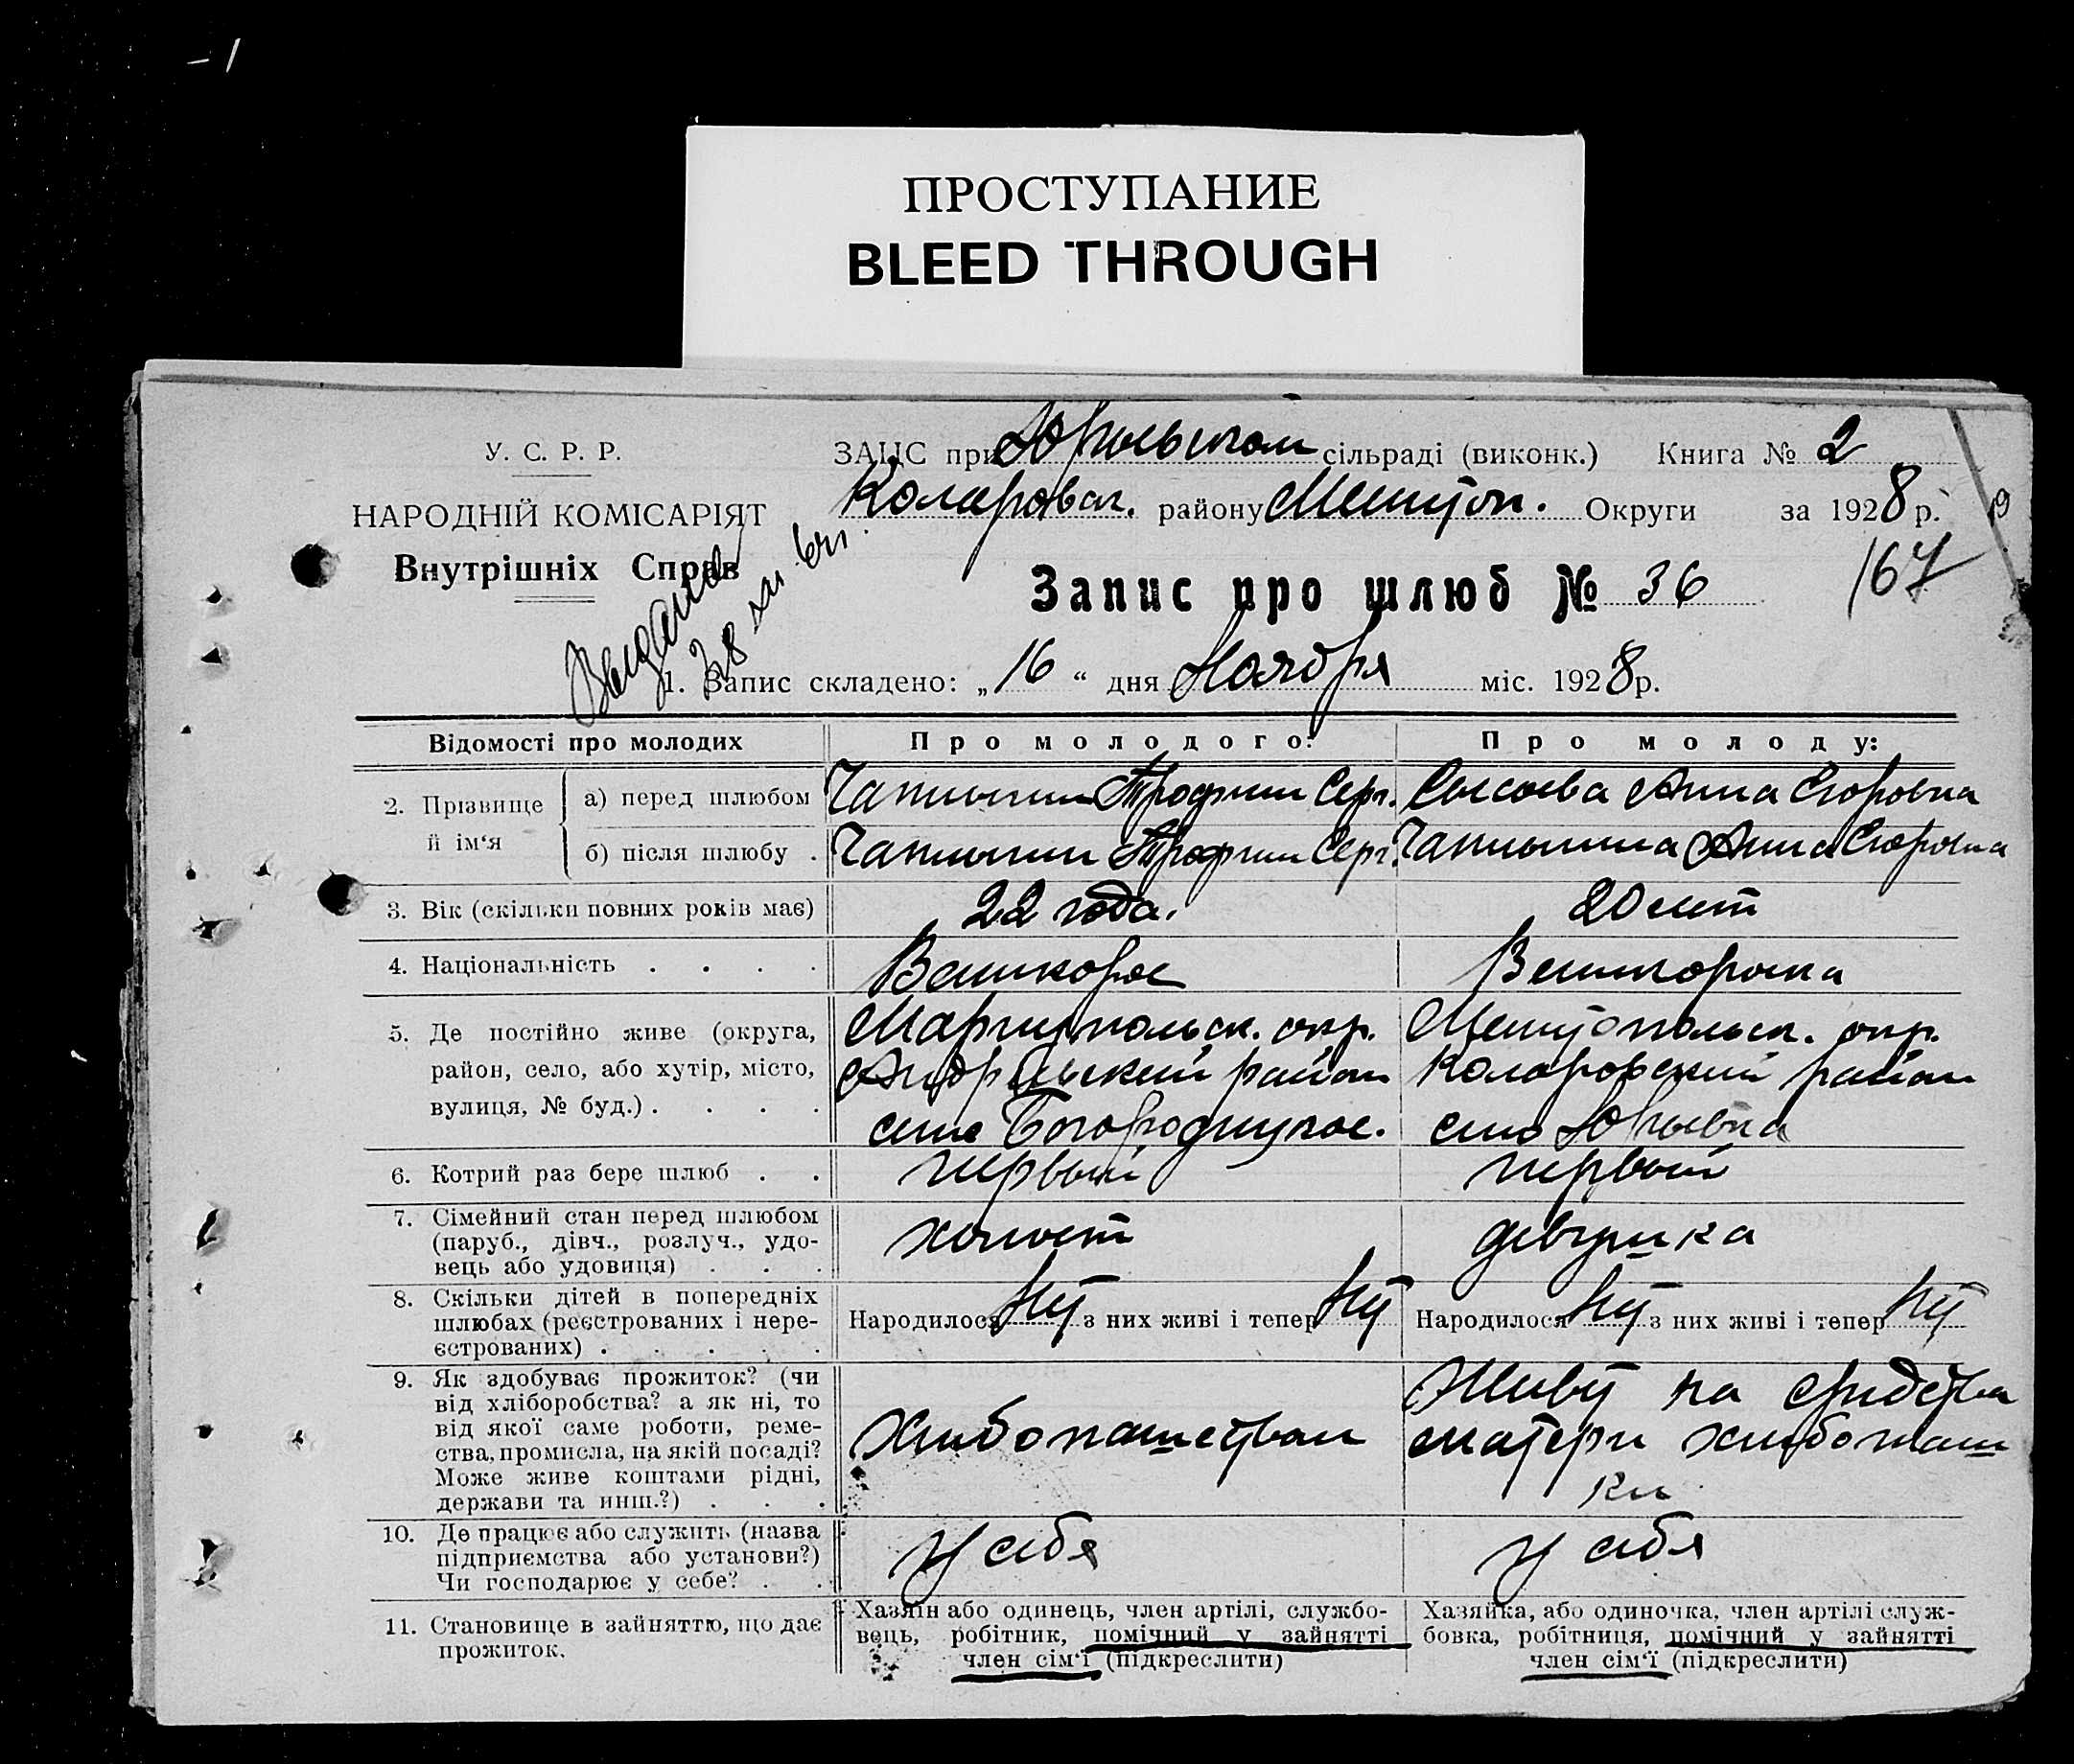 ПРОСТУПАНИЕ
BLEED THROUGH
У. С. Р. Р.
НАРОДНІЙ КОМІСАРІЯТ
Внутрішніх Справ
ЗАЦС при Юрьевском сільраді (виконк.) Книга № 2
Коларовск. району Мелитоп. Округи за 1928 р.
167
Запис про шлюб № 36
Выдана
1. Запис складено: „16“ дня Ноября міс. 1928 р.
Відомості про молодих
Про молодого:
Про молоду:
2. Прізвище й ім‘я
а) перед шлюбом
Трофим Серг.
Сысоева Анна Егоровна
б) після шлюбу .
Трофим Серг.
Анна Егоровна
3. Вік (скільки повних років має)
22 года.
20 лет
4. Національність . . . .
Великорос
Великороска
5. Де постійно живе (округа,
район, село, або хутір, місто,
вулиця, № буд.) . . . .
Мариупольск. окр.
район
село Богородицкое.
Мелитопольск. окр.
Коларовский район
село Юрьевка
6. Котрий раз бере шлюб . .
первый
первый
7. Сімейний стан перед шлюбом
(паруб., дівч., розлуч., удо-
вець або удовиця) . . .
холост
девушка
8. Скільки дітей в попередніх
шлюбах (реєстрованих і нере-
єстрованих) . . . . .
Народилося нет з них живі і тепер нет
Народилося нет з них живі і тепер нет
9. Як здобуває прожиток? (чи
від хліборобства? а як ні, то
від якої саме роботи, реме-
ства, промисла, на якій посаді?
Може живе коштами рідні,
держави та инш.?) . . .
Хлебопашеством
Живет на средства
матери хлебопаш
ки
10. Де працює або служить (назва
підприємства або установи?)
Чи господарює у себе? . .
у себя
у себя
11. Становище в зайняттю, що дає
прожиток.
Хазяїн або одинець, член артілі, службо-
вець, робітник, помічний у зайнятті
член сім‘ї (підкреслити)
Хазяйка, або одиночка, член артілі служ-
бовка, робітниця, помічний у зайнятті
член сім‘ї (підкреслити)